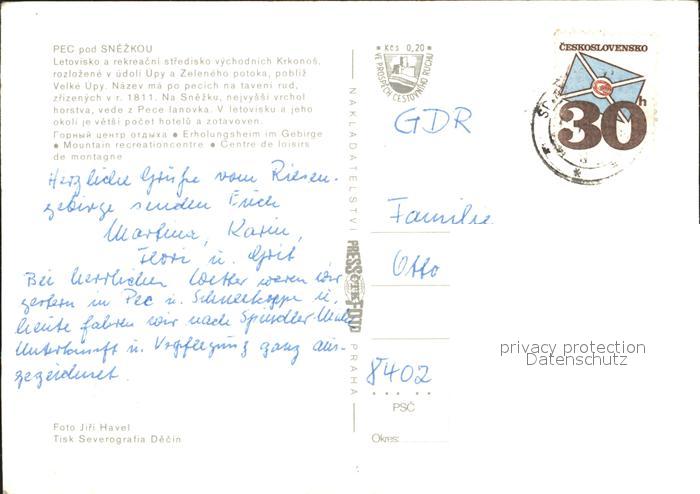 PEC pod SNĚŽKOU
Letovisko a rekreační středisko východních Krkonoš,
rozložené v údolí Úpy a Zeleného potoka, poblíž
Velké Úpy. Název má po pecích na tavení rud,
zřízených v r. 1811. Na Sněžku, nejvyšší vrchol
horstva, vede z Pece lanovka. V letovisku a jeho
okolí je větší počet hotelů a zotavoven.
Горный центр отдыха • Erholungsheim im Gebirge
• Mountain recreationcentre • Centre de loisirs
de montagne
Herzliche Grüße vom Riesen-
gebirge senden Euch
Martina, Karin,
u. Grit
Bei herrlichem Wetter waren wir
gestern in Pec u. Schneekoppe u.
heute fahren wir nach Spindler-Mühle
Unterkunft u. Verpflegung ganz aus-
gezeichnet.
Foto Jiří Havel
Tisk Severografia Děčín
NAKLADATELSTVÍ
PRESSFOTO
ČTK
PRAHA
* Kčs 0,20 *
VE PROSPĚCH CESTOVNÍHO RUCHU
ČESKOSLOVENSKO
30h
GDR
Familie
Otto
8402
PSČ
Okres:
privacy protection
Datenschutz